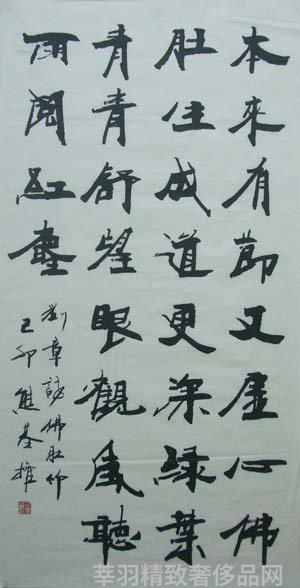 本來有節又虛心佛
肚生成道更深綠葉
青青舒望眼觀風聽
雨閱紅塵
刘章詩佛肚竹
己卯熊基權
莘羽精致奢侈品网